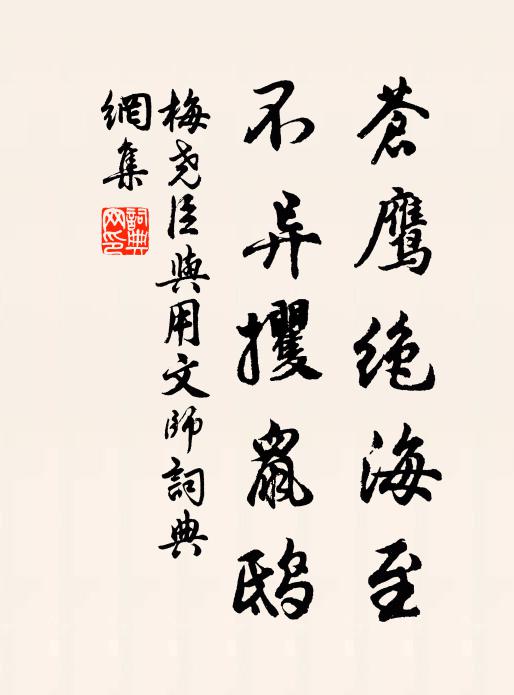 蒼鷹絶海至
不异攫鼠鴟
梅尧臣與用文師詞典
網集
詞典
网印